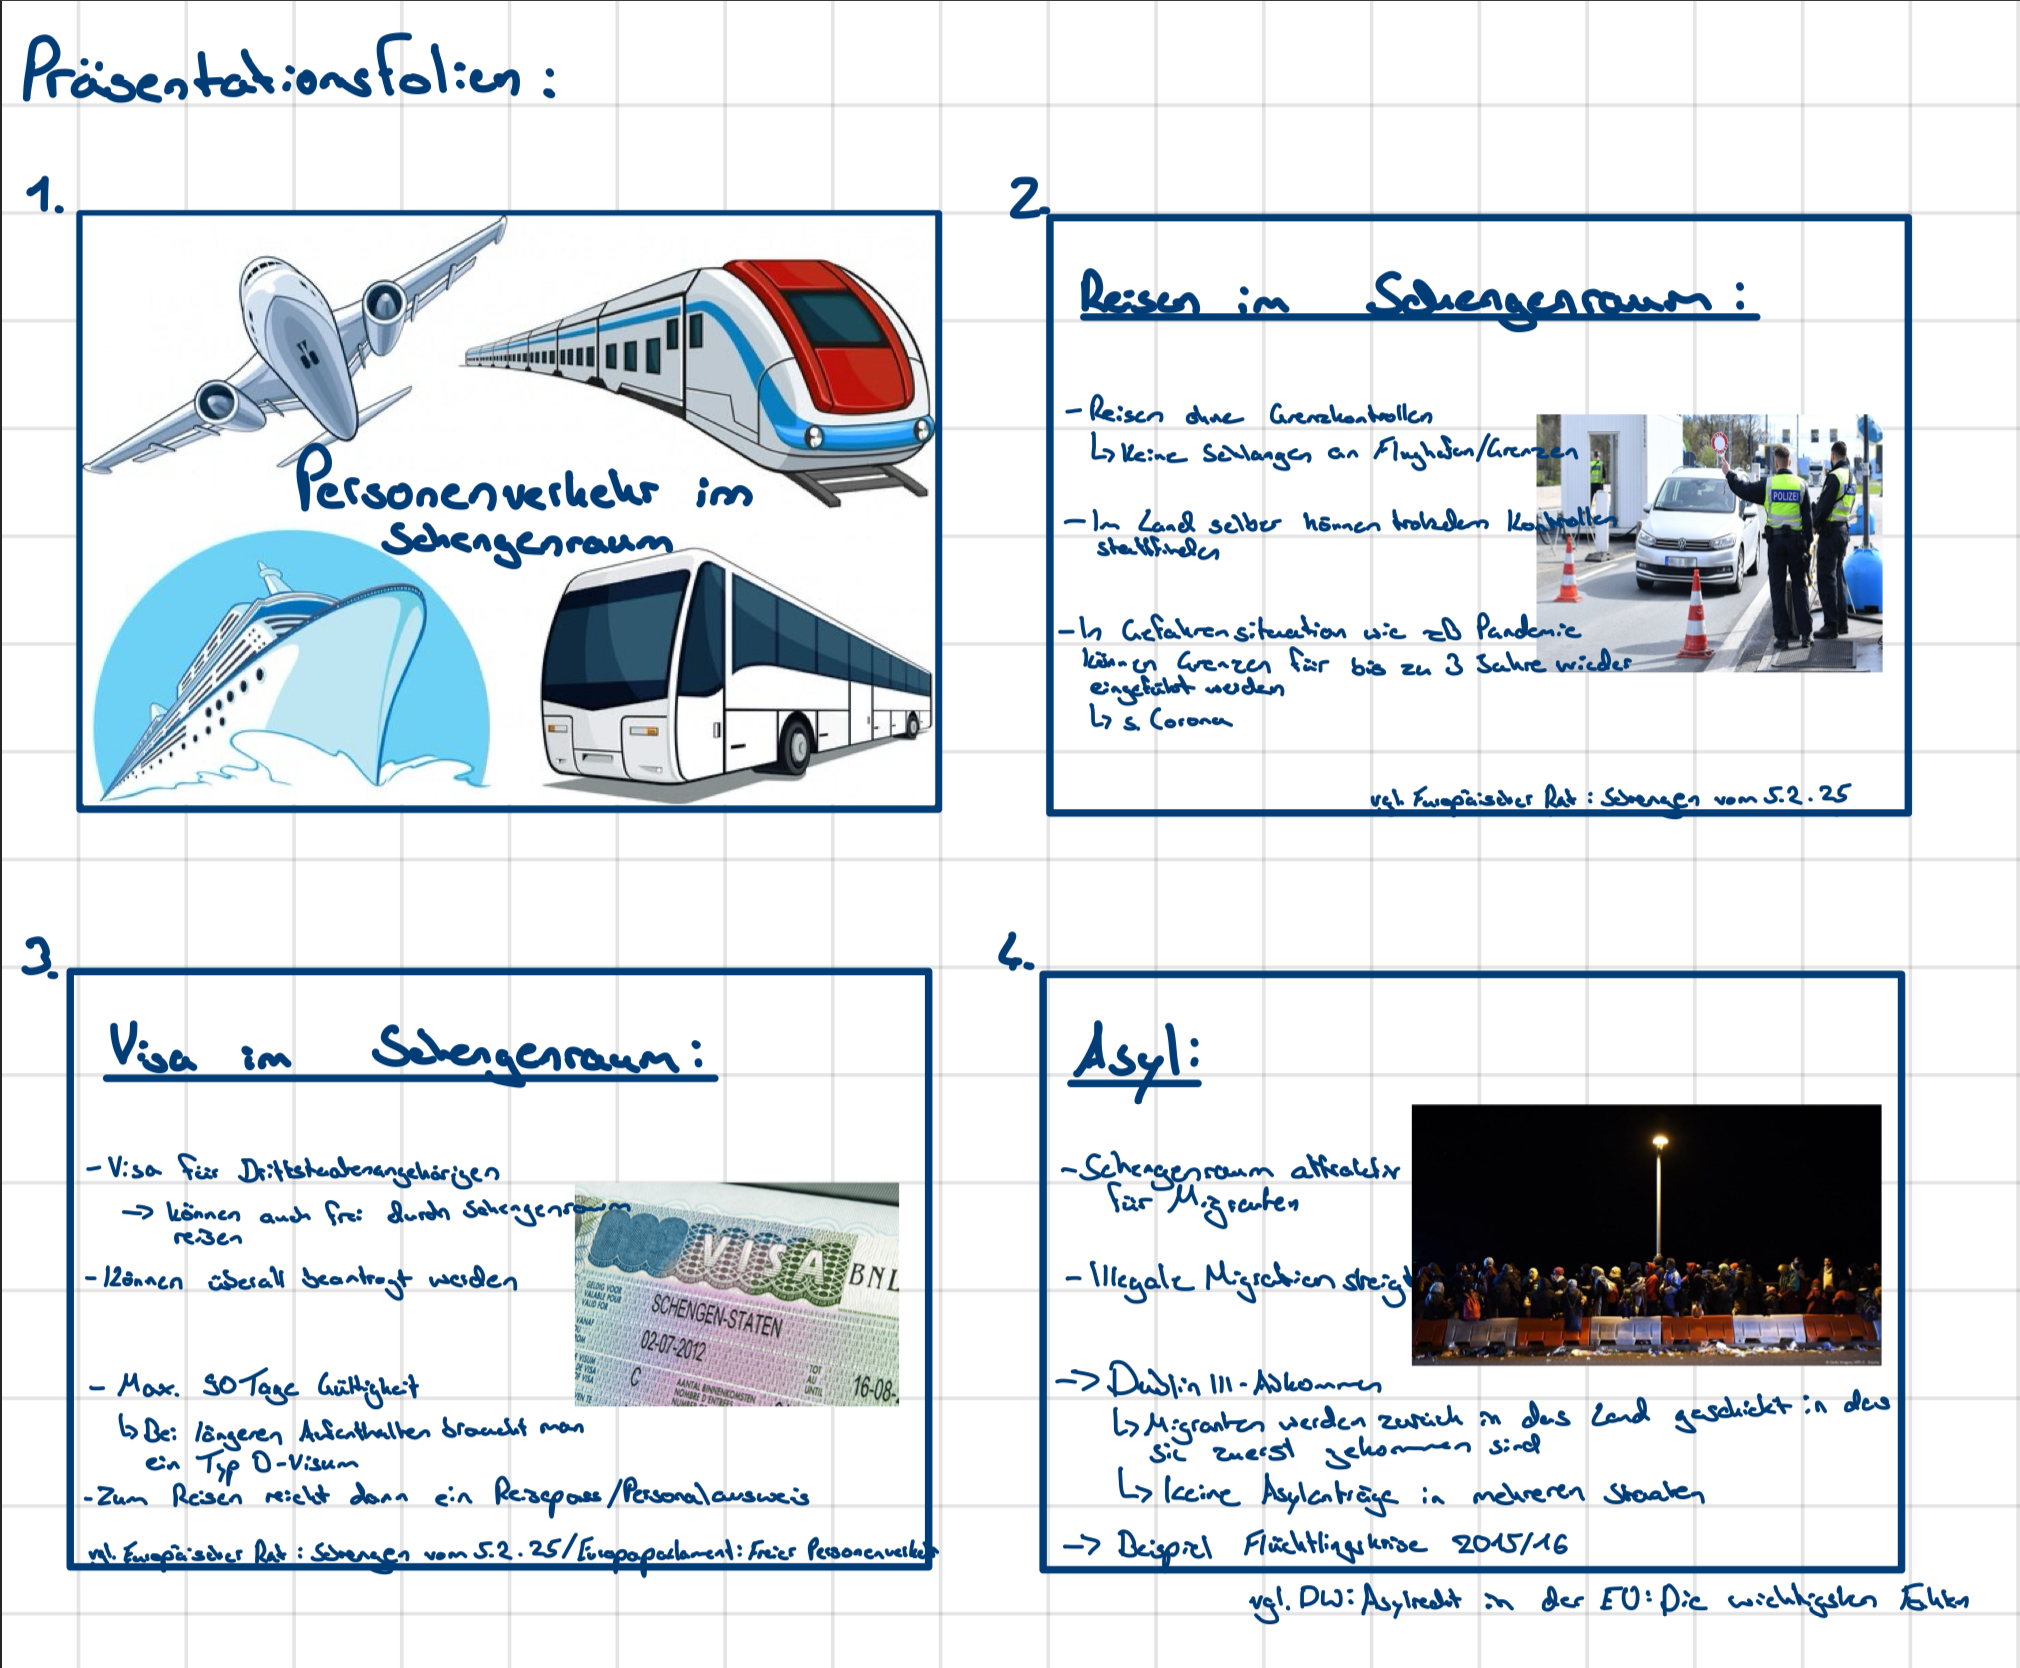 Präsentationsfolien:
1.
Personenverkehr im
Schengenraum
2.
Reisen im Schengenraum:
- Reisen ohne Grenzkontrollen
↳ Keine Schlangen an Flughafen/Grenzen
- Im Land selber können trotzdem Kontrollen
stattfinden
- In Gefahrensituation wie zB Pandemie
können Grenzen für bis zu 3 Jahre wieder
eingeführt werden
↳ s. Corona
POLIZEI
vgl. Europäischer Rat: Schengen vom 5.2.25
3.
Visa im Schengenraum:
- Visa für Drittstaatenangehörigen
-> können auch frei durch Schengenraum
reisen
- Können überall beantragt werden
- Max. 90 Tage Gültigkeit
↳ Bei längeren Aufenthalten braucht man
ein Typ D-Visum
- Zum Reisen reicht dann ein Reisepass/Personalausweis
vgl. Europäischer Rat: Schengen vom 5.2.25/Europaparlament: Freier Personenverkehr
VISA
BNL
SCHENGEN-STATEN
02-07-2012
C
TOT
AU
UNTIL
16-08-
AANTAL BINNENKOMSTEN
4.
Asyl:
- Schengenraum attraktiv
für Migranten
- Illegale Migration steigt
-> Dublin III-Abkommen
↳ Migranten werden zurück in das Land geschickt in das
sie zuerst gekommen sind
↳ Keine Asylanträge in mehreren Staaten
-> Beispiel Flüchtlingskrise 2015/16
vgl. DW: Asylrecht in der EU: Die wichtigsten Fakten